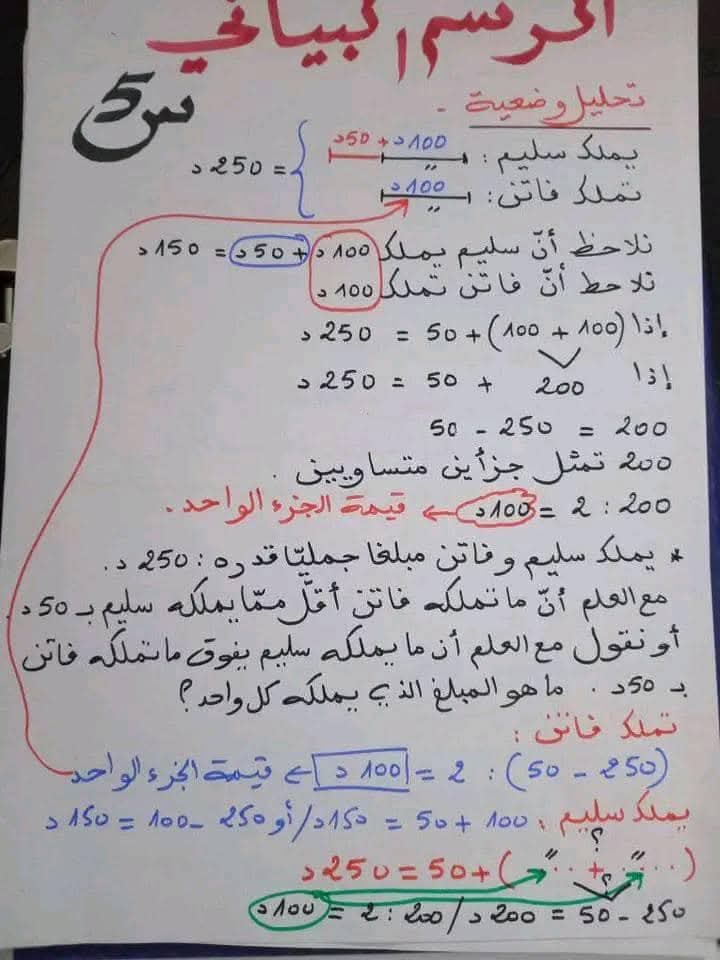 الرسم البياني
س5
تحليل وضعية.
يملك سليم: 100د + 50د
تملك فاتن: 100د
= 250 د
نلاحظ أنّ سليم يملك 100د + 50د = 150 د
نلاحظ أنّ فاتن تملك 100د
إذا (100 + 100) + 50 = 250 د
إذا 200 + 50 = 250 د
200 = 250 - 50
200 تمثل جزأين متساويين.
200 : 2 = 100د ← قيمة الجزء الواحد.
* يملك سليم وفاتن مبلغا جمليّا قدره: 250 د.
مع العلم أنّ ما تملكه فاتن أقلّ ممّا يملكه سليم بـ 50د.
أو نقول مع العلم أن ما يملكه سليم يفوق ما تملكه فاتن
بـ 50د. ما هو المبلغ الذي يملكه كل واحد؟
تملك فاتن:
(250 - 50) : 2 = 100 د ← قيمة الجزء الواحد
يملك سليم: 100 + 50 = 150د/ أو 250 - 100 = 150 د
؟
(.... + ....) + 50 = 250 د
؟
250 - 50 = 200 د / 200 : 2 = 100د